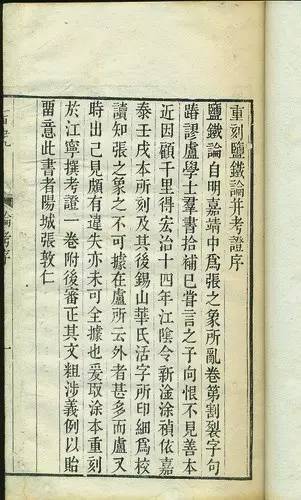 重刻鹽鐵論并考證序
鹽鐵論自明嘉靖中爲張之象所亂卷第割裂字句
踳謬盧學士羣書拾補已嘗言之予向恨不見善本
近因顧千里得宏治十四年江陰令新淦涂禎依嘉
泰壬戌本所刻及其後錫山華氏活字所印細爲校
讀知張之象之不可據在盧所云外者甚多而盧又
時出己見頗有違失亦未可全據也爰取涂本重刻
於江寧撰考證一卷附後審正其文粗涉義例以貽
畱意此書者陽城張敦仁
論考序
一